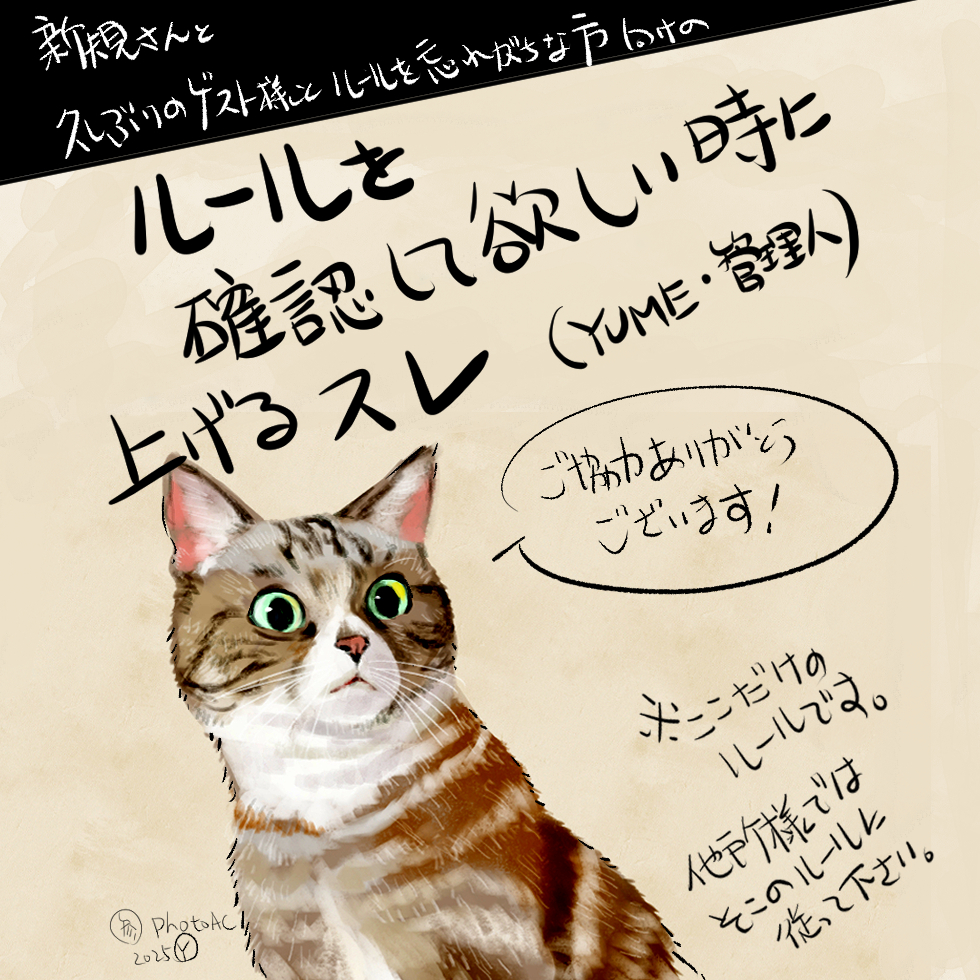 新規さんと
久しぶりのゲスト様とルールを忘れがちな方向けの
ルールを
確認して欲しい時に
上げるスレ(YUME・管理人)
ご協力ありがとう
ございます!
※ここだけの
ルールです。
他所様では
そこのルールに
従って下さい。
photoAC
2025 Y